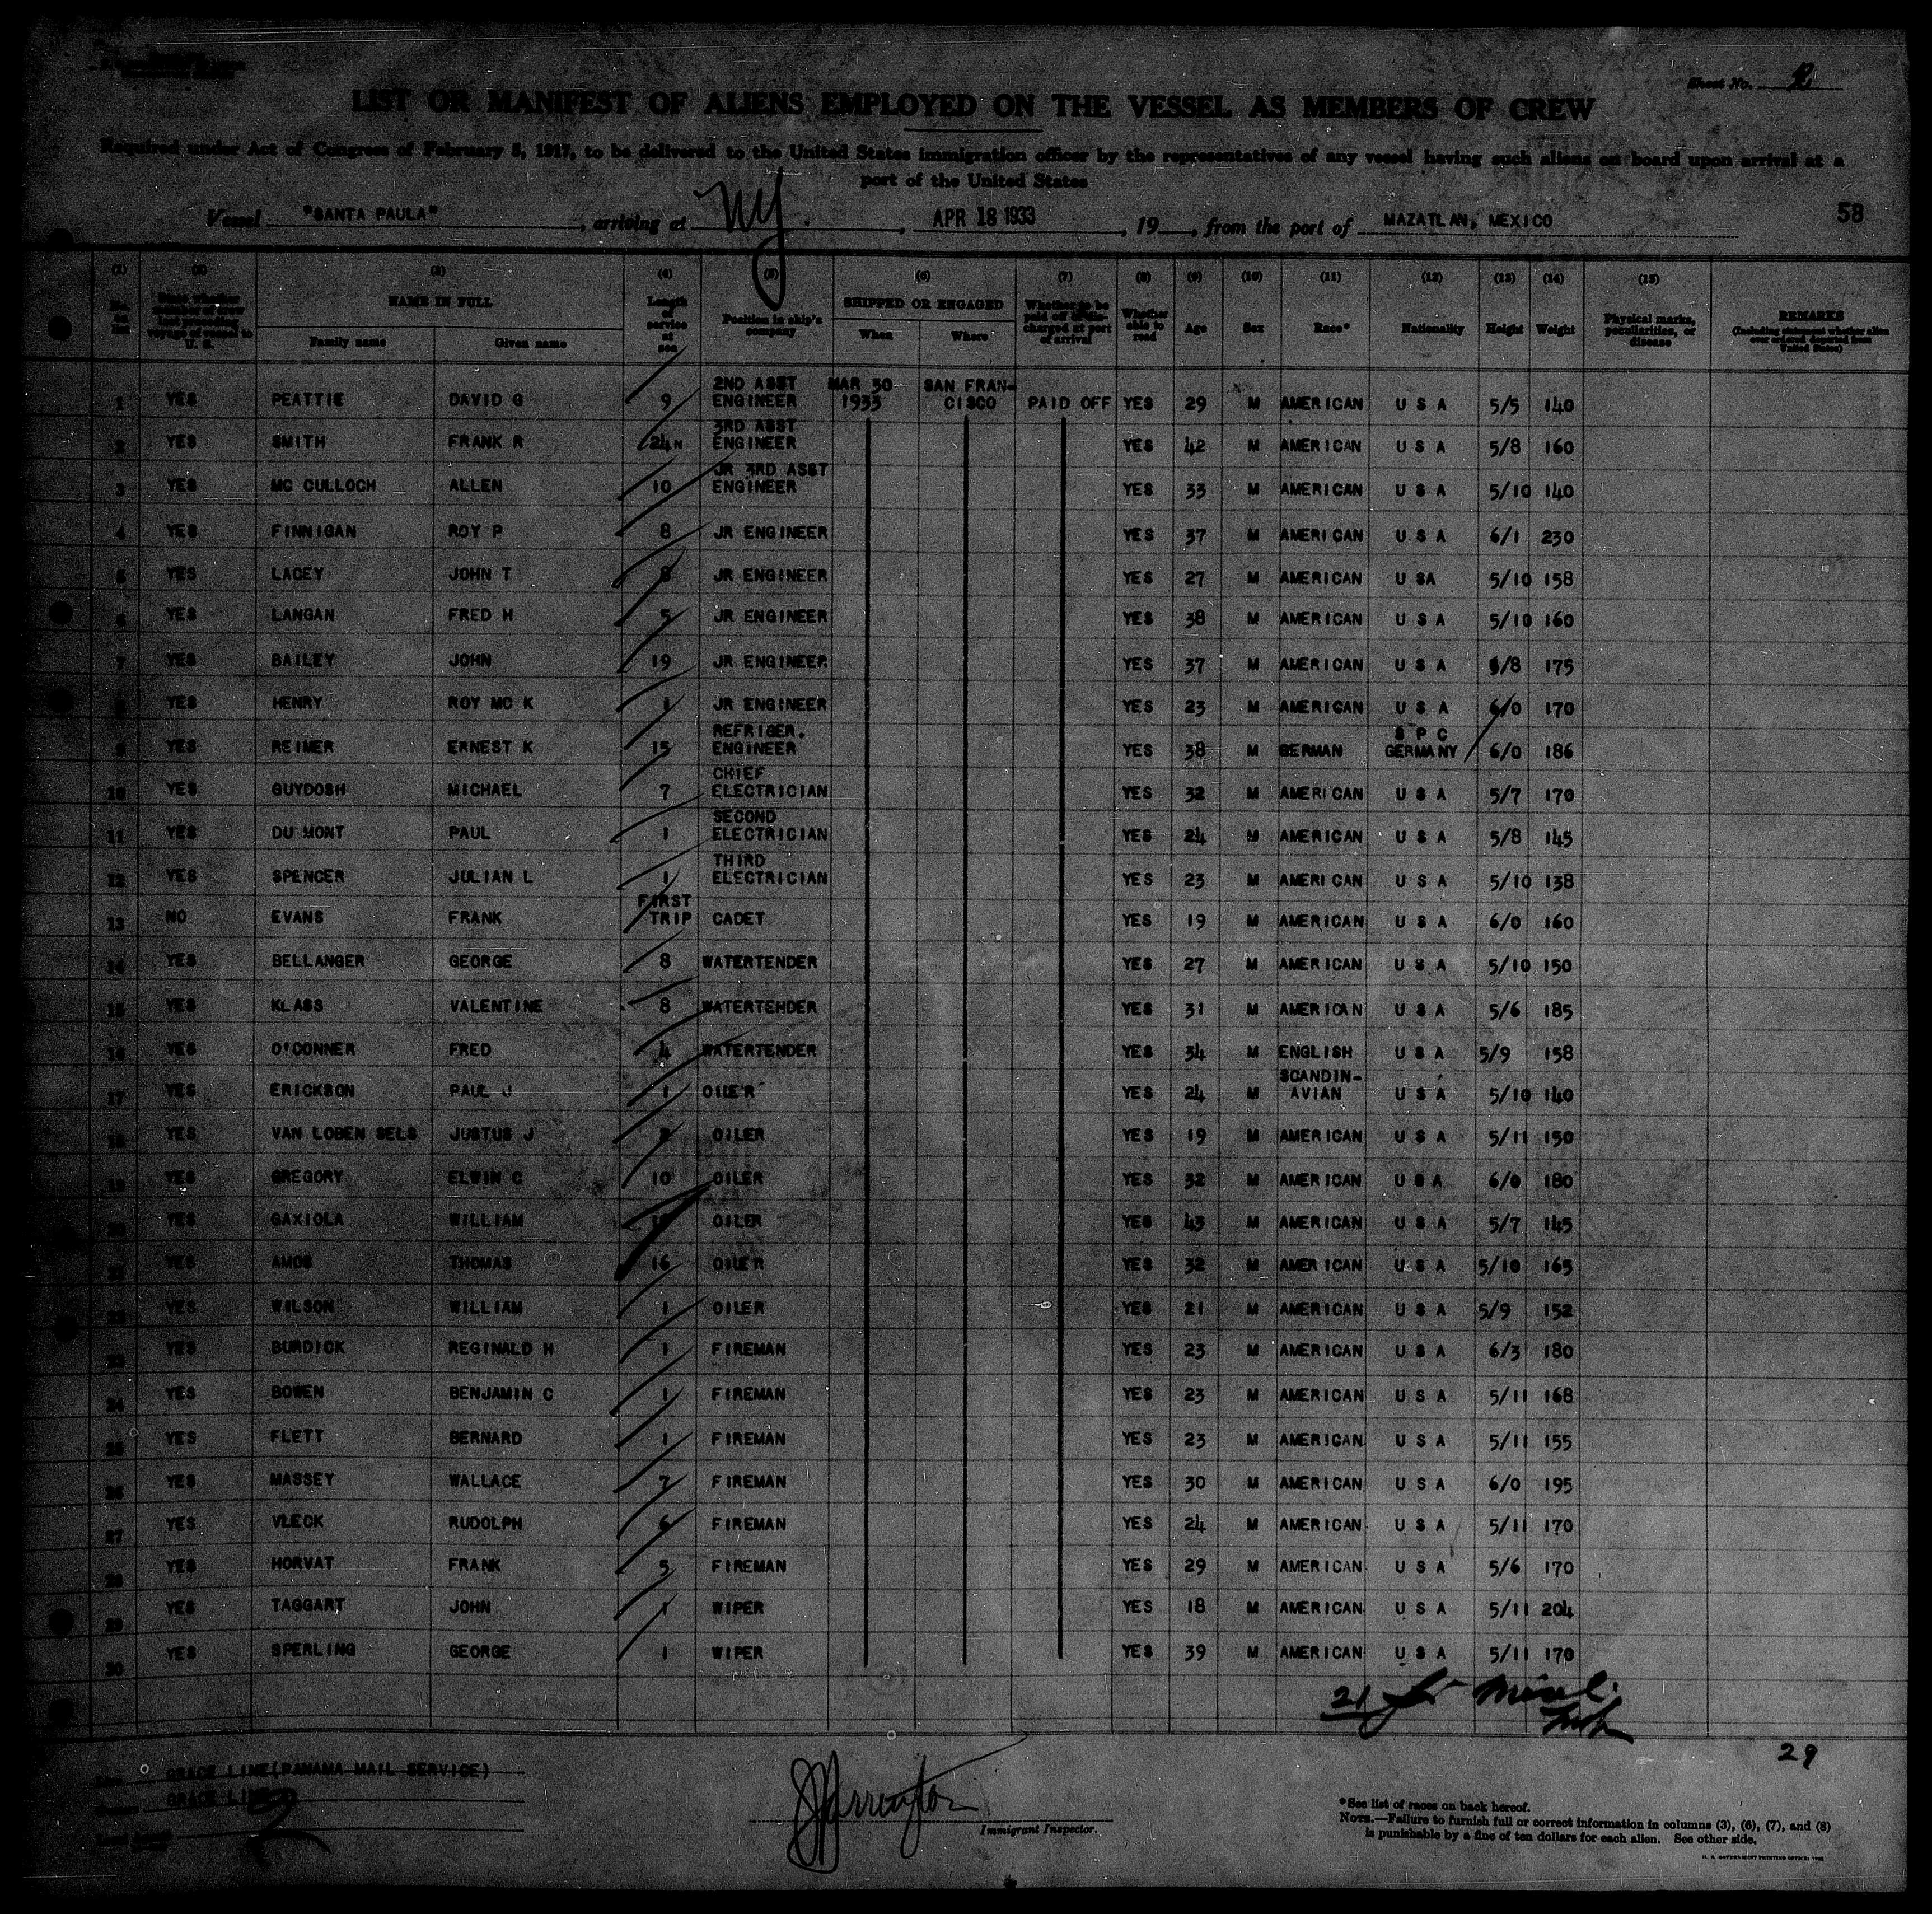 Sheet No. 2
LIST OR MANIFEST OF ALIENS EMPLOYED ON THE VESSEL AS MEMBERS OF CREW
Required under Act of Congress of February 5, 1917, to be delivered to the United States immigration officer by the representatives of any vessel having such aliens on board upon arrival at a
port of the United States
Vessel "SANTA PAULA", arriving at NY., APR 18 1933, 19, from the port of MAZATLAN, MEXICO 58
(1) (2) (3) (4) (5) (6) (7) (8) (9) (10) (11) (12) (13) (14) (15)
No. on list NAME IN FULL Family name Given name Length of service at sea Position in ship's company SHIPPED OR ENGAGED When Where Whether to be paid off or discharged at port of arrival Whether able to read Age Sex Race* Nationality Height Weight Physical marks, peculiarities, or disease REMARKS (Including statement whether alien ever ordered deported from United States)
1 YES PEATTIE DAVID G 9 2ND ASST ENGINEER MAR 30 1933 SAN FRAN-CISCO PAID OFF YES 29 M AMERICAN U S A 5/5 140
2 YES SMITH FRANK R 24N 3RD ASST ENGINEER YES 42 M AMERICAN U S A 5/8 160
3 YES MC CULLOCH ALLEN 10 JR 3RD ASST ENGINEER YES 33 M AMERICAN U S A 5/10 140
4 YES FINNIGAN ROY P 8 JR ENGINEER YES 37 M AMERICAN U S A 6/1 230
5 YES LACEY JOHN T 8 JR ENGINEER YES 27 M AMERICAN U SA 5/10 158
6 YES LANGAN FRED H 5 JR ENGINEER YES 38 M AMERICAN U S A 5/10 160
7 YES BAILEY JOHN 19 JR ENGINEER YES 37 M AMERICAN U S A 5/8 175
8 YES HENRY ROY MC K 1 JR ENGINEER YES 23 M AMERICAN U S A 6/0 170
9 YES REIMER ERNEST K 15 REFRIGER. ENGINEER YES 38 M GERMAN S P C GERMANY 6/0 186
10 YES GUYDOSH MICHAEL 7 CHIEF ELECTRICIAN YES 32 M AMERICAN U S A 5/7 170
11 YES DU MONT PAUL 1 SECOND ELECTRICIAN YES 24 M AMERICAN U S A 5/8 145
12 YES SPENCER JULIAN L 1 THIRD ELECTRICIAN YES 23 M AMERICAN U S A 5/10 138
13 NO EVANS FRANK FIRST TRIP CADET YES 19 M AMERICAN U S A 6/0 160
14 YES BELLANGER GEORGE 8 WATERTENDER YES 27 M AMERICAN U S A 5/10 150
15 YES KLASS VALENTINE 8 WATERTENDER YES 31 M AMERICAN U S A 5/6 185
16 YES O'CONNER FRED 4 WATERTENDER YES 34 M ENGLISH U S A 5/9 158
17 YES ERICKSON PAUL J 1 OILER YES 24 M SCANDIN-AVIAN U S A 5/10 140
18 YES VAN LOBEN SELS JUSTUS J OILER YES 19 M AMERICAN U S A 5/11 150
19 YES GREGORY ELWIN C 10 OILER YES 32 M AMERICAN U S A 6/0 180
20 YES GAXIOLA WILLIAM OILER YES 43 M AMERICAN U S A 5/7 145
21 YES AMOS THOMAS 16 OILER YES 32 M AMERICAN U S A 5/10 165
22 YES WILSON WILLIAM 1 OILER YES 21 M AMERICAN U S A 5/9 152
23 YES BURDICK REGINALD H 1 FIREMAN YES 23 M AMERICAN U S A 6/3 180
24 YES BOWEN BENJAMIN C 1 FIREMAN YES 23 M AMERICAN U S A 5/11 168
25 YES FLETT BERNARD 1 FIREMAN YES 23 M AMERICAN U S A 5/11 155
26 YES MASSEY WALLACE 7 FIREMAN YES 30 M AMERICAN U S A 6/0 195
27 YES VLECK RUDOLPH 6 FIREMAN YES 24 M AMERICAN U S A 5/11 170
28 YES HORVAT FRANK 5 FIREMAN YES 29 M AMERICAN U S A 5/6 170
29 YES TAGGART JOHN 1 WIPER YES 18 M AMERICAN U S A 5/11 204
30 YES SPERLING GEORGE 1 WIPER YES 39 M AMERICAN U S A 5/11 170
21
29
GRACE LINE(PANAMA MAIL SERVICE)
GRACE LINE
Immigrant Inspector.
*See list of races on back hereof.
NOTE.—Failure to furnish full or correct information in columns (3), (6), (7), and (8)
is punishable by a fine of ten dollars for each alien. See other side.